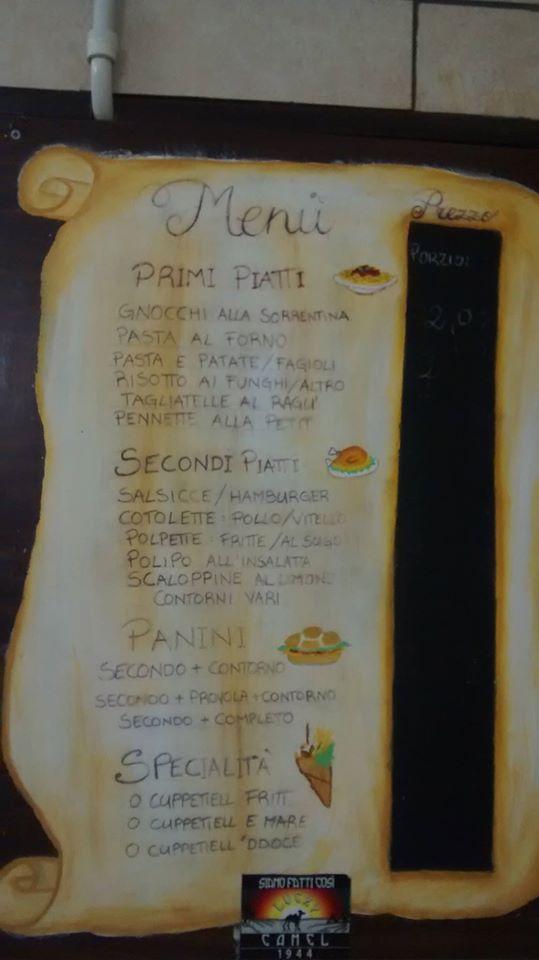 Menù
Prezzo
PORZION
2,0
PRIMI PIATTI
GNOCCHI ALLA SORRENTINA
PASTA AL FORNO
PASTA E PATATE/FAGIOLI
RISOTTO AI FUNGHI/ALTRO
TAGLIATELLE AL RAGU'
PENNETTE ALLA PETIT
SECONDI PIATTI
SALSICCE/HAMBURGER
COTOLETTE: POLLO/VITELLO
POLPETTE: FRITTE/AL SUGO
POLIPO ALL'INSALATA
SCALOPPINE AL LIMONE
CONTORNI VARI
PANINI
SECONDO + CONTORNO
SECONDO + PROVOLA + CONTORNO
SECONDO + COMPLETO
SPECIALITÀ
O CUPPETIELL FRITT
O CUPPETIELL E MARE
O CUPPETIELL 'DDOCE
SIAMO FATTI COSÌ
LUCKY
CAMEL
1944